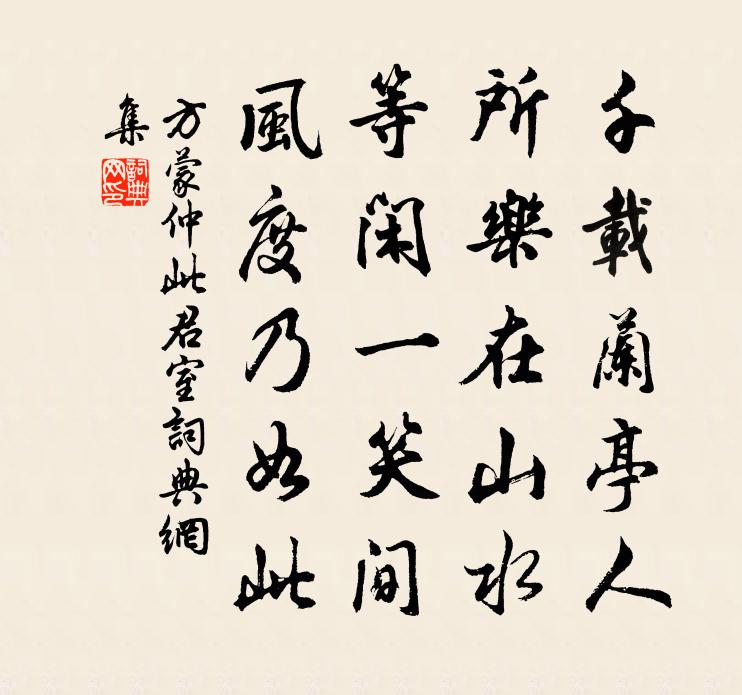 千載蘭亭人
所樂在山水
等閑一笑間
風度乃如此
方蒙仲此君室詞典網
集
詞典
網印